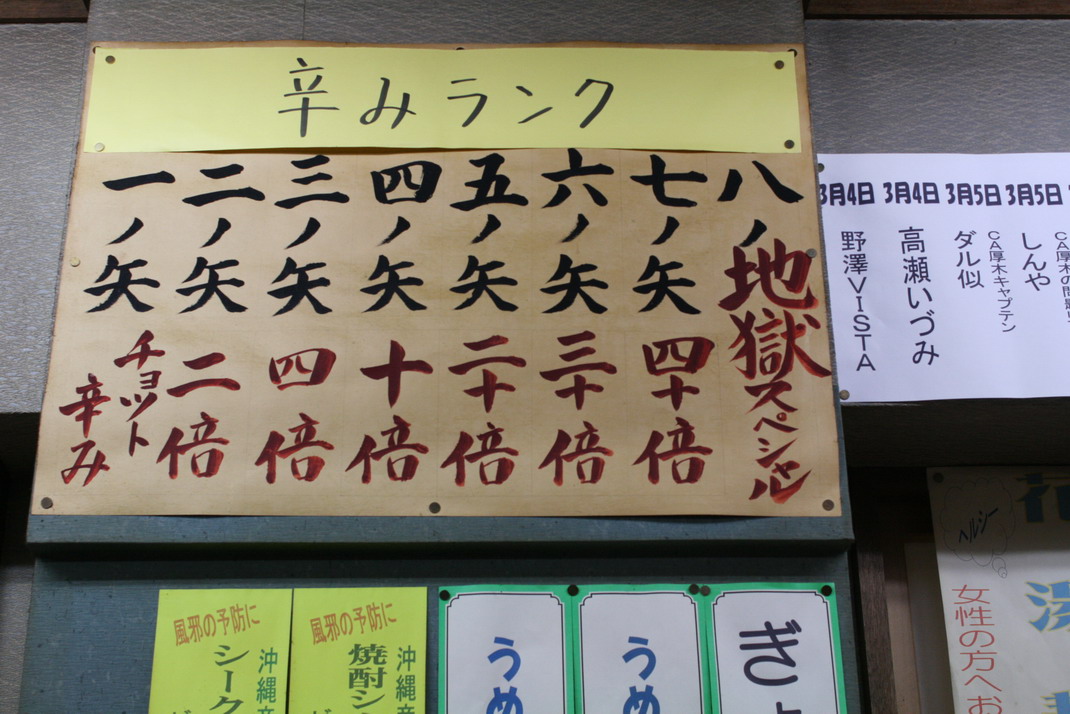 辛みランク
一ノ矢 チョット辛み
二ノ矢 二倍
三ノ矢 四倍
四ノ矢 十倍
五ノ矢 二十倍
六ノ矢 三十倍
七ノ矢 四十倍
八ノ地獄スペシャル
3月4日 野澤VISTA
3月4日 高瀬いづみ
3月5日 ダル似
CA厚木キャプテン
3月5日 しんや
CA厚木の問題
風邪の予防に
沖縄産
シーク
風邪の予防に
沖縄産
焼酎シ
うめ
うめ
ぎょ
ヘルシー
女性の方へお